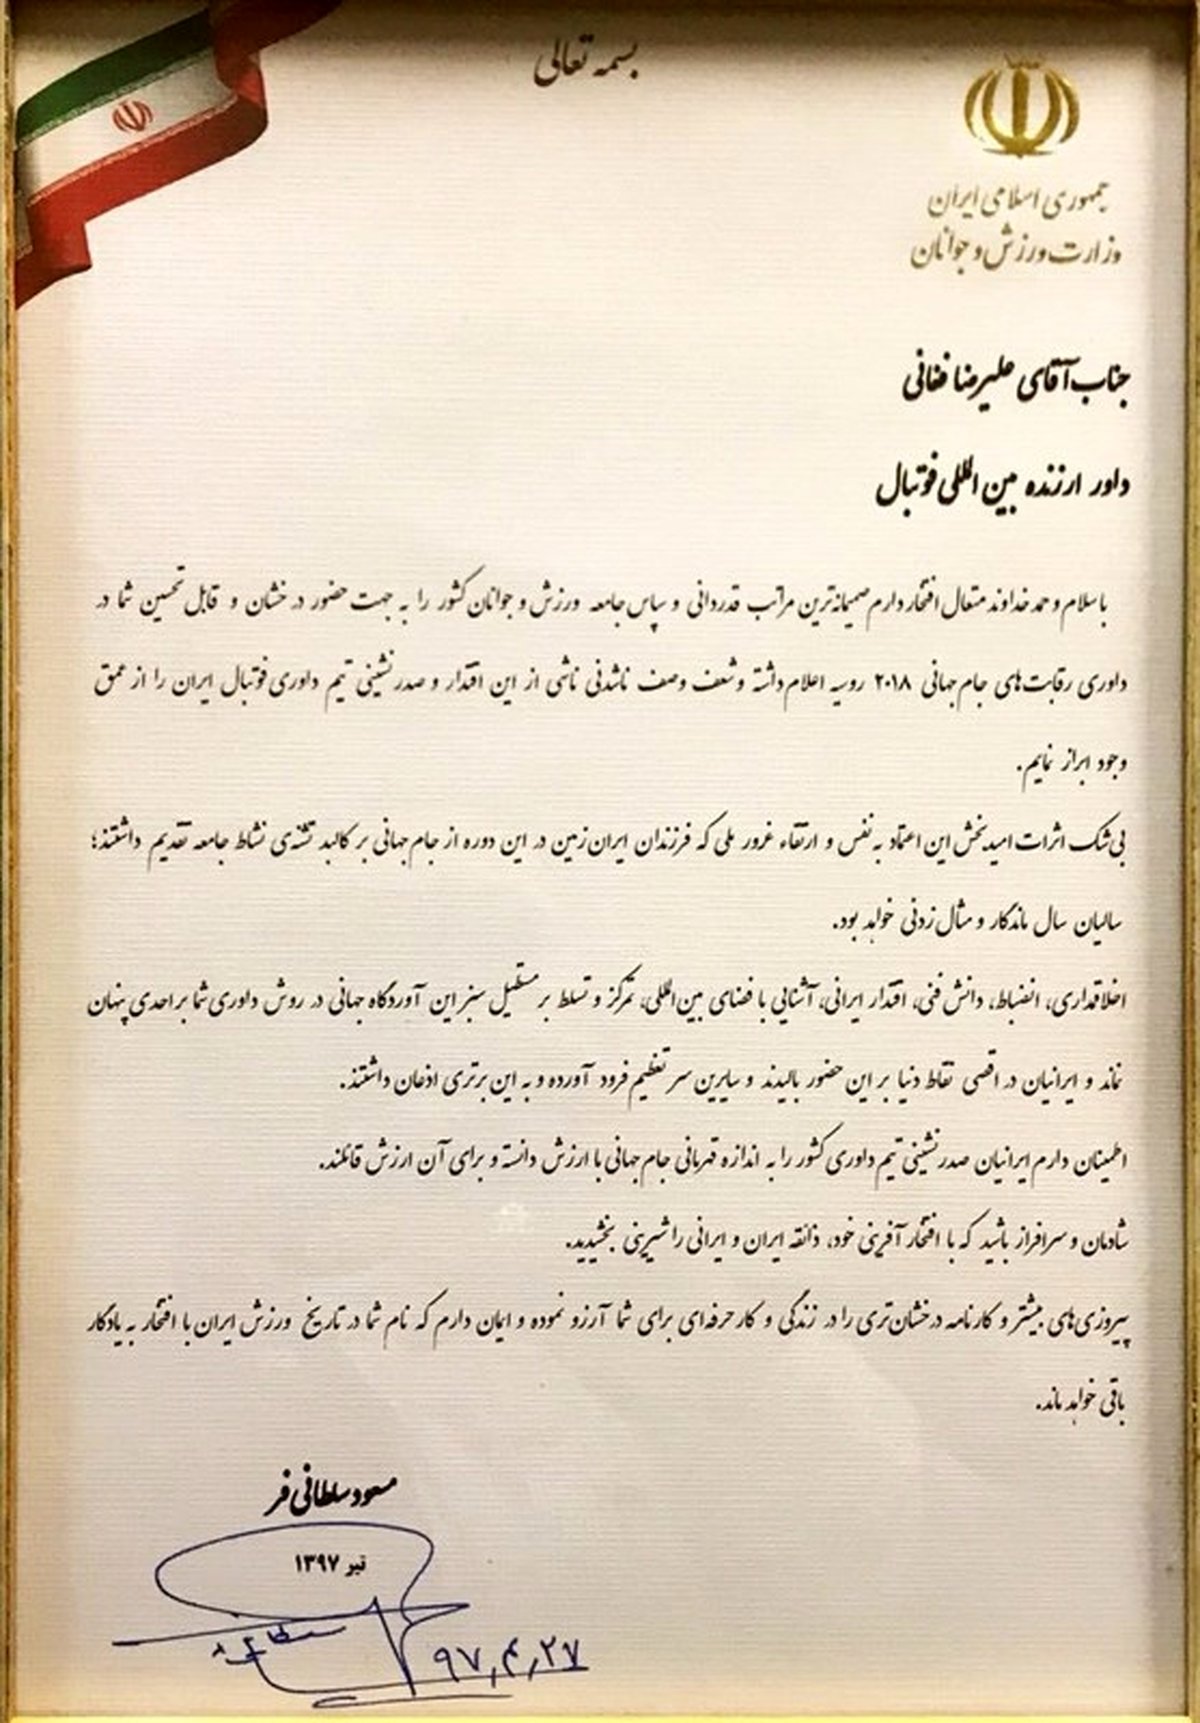 بسمه تعالی
جمهوری اسلامی ایران
وزارت ورزش و جوانان
جناب آقای علیرضا فغانی
داور ارزنده بین المللی فوتبال
با سلام و حمد خداوند متعال افتخار دارم صمیمانه‌ترین مراتب قدردانی و سپاس جامعه ورزش و جوانان کشور را به جهت حضور درخشان و قابل تحسین شما در
داوری رقابت‌های جام جهانی ۲۰۱۸ روسیه اعلام داشته و شعف وصف ناشدنی ناشی از این اقتدار و صدرنشینی تیم داوری فوتبال ایران را از عمق
وجود ابراز نمایم.
بی‌شک اثرات امیدبخش این اعتماد به نفس و ارتقاء غرور ملی که فرزندان ایران زمین در این دوره از جام جهانی بر کالبد تشنه‌ی نشاط جامعه تقدیم داشتند؛
سالیان سال ماندگار و مثال زدنی خواهد بود.
اخلاقمداری، انضباط، دانش فنی، اقتدار ایرانی، آشنایی با فضای بین‌المللی، تمرکز و تسلط بر مستطیل سبز این آوردگاه جهانی در روش داوری شما بر احدی پنهان
نماند و ایرانیان در اقصی نقاط دنیا بر این حضور بالیدند و سایرین سر تعظیم فرود آورده و به این برتری اذعان داشتند.
اطمینان دارم ایرانیان صدرنشینی تیم داوری کشور را به اندازه قهرمانی جام جهانی با ارزش دانسته و برای آن ارزش قائلند.
شادمان و سرافراز باشید که با افتخار آفرینی خود، ذائقه ایران و ایرانی را شیرینی بخشیدید.
پیروزی‌های بیشتر و کارنامه درخشان‌تری را در زندگی و کار حرفه‌ای برای شما آرزو نموده و ایمان دارم که نام شما در تاریخ ورزش ایران با افتخار به یادگار
باقی خواهد ماند.
مسعود سلطانی فر
تیر ۱۳۹۷
۹۷,۴,۲۷